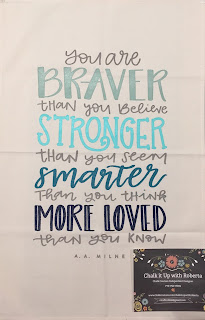 you are
BRAVER
than you believe
STRONGER
than you seem
smarter
Than you think
MORE LOVED
than you know
A.A. MILNE
Chalk It Up with Roberta